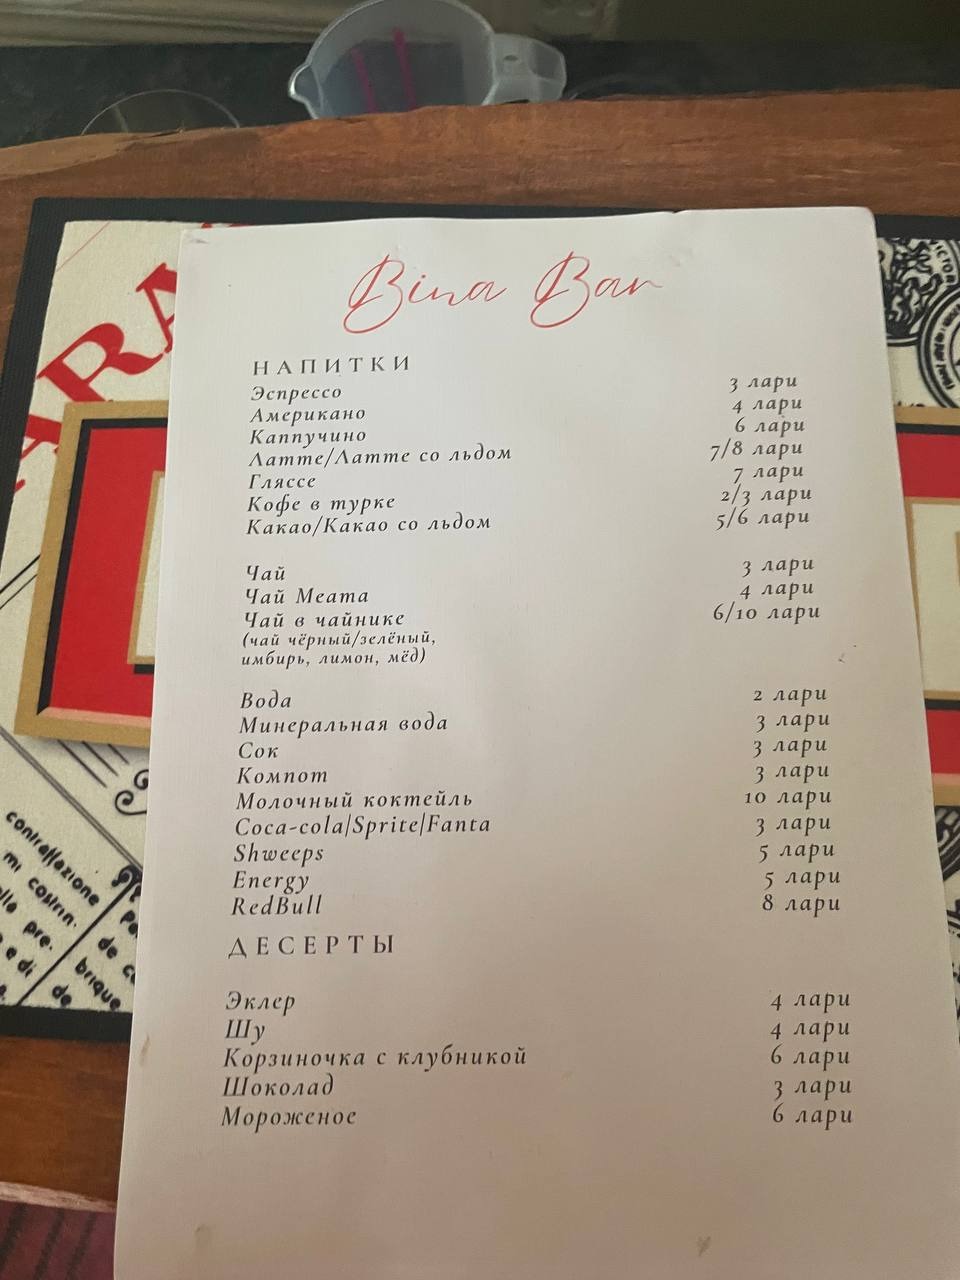 Bina Bar
НАПИТКИ
Эспрессо 3 лари
Американо 4 лари
Каппучино 6 лари
Латте/Латте со льдом 7/8 лари
Гляссе 7 лари
Кофе в турке 2/3 лари
Какао/Какао со льдом 5/6 лари
Чай 3 лари
Чай Меата 4 лари
Чай в чайнике 6/10 лари
(чай чёрный/зелёный,
имбирь, лимон, мёд)
Вода 2 лари
Минеральная вода 3 лари
Сок 3 лари
Компот 3 лари
Молочный коктейль 10 лари
Coca-cola|Sprite|Fanta 3 лари
Shweeps 5 лари
Energy 5 лари
RedBull 8 лари
ДЕСЕРТЫ
Эклер 4 лари
Шу 4 лари
Корзиночка с клубникой 6 лари
Шоколад 3 лари
Мороженое 6 лари
ARA
VICTOR
contraffazione
mi costrin-
pre-
e di
de
brique
de